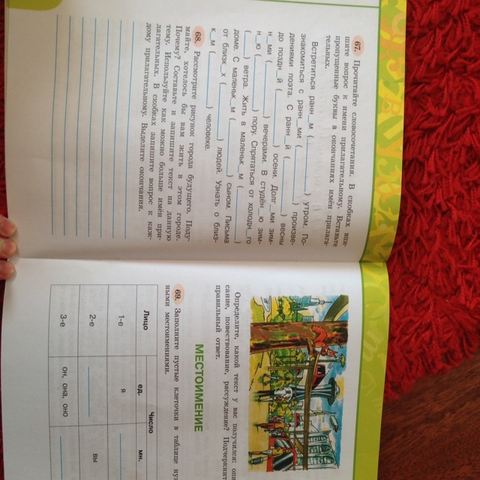 67. Прочитайте словосочетания. В скобках впи-
шите вопрос к имени прилагательному. Вставьте
пропущенные буквы в окончаниях имён прилага-
тельных.
Встретиться ранн__м (______) утром. По-
знакомиться с ранн__ми (______) произве-
дениями поэта. С ранн__й (______) весны
до поздн__й (______) осени. Долг__ми зим-
н__ми (______) вечерами. В студён__ю зим-
н__ю (______) пору. Спрятаться от холодн__го
(______) ветра. Жить в маленьк__м (______)
доме. С маленьк__м (______) сыном. Письма
от близк__х (______) людей. Узнать о близ-
к__м (______) человеке.
68. Рассмотрите рисунок города будущего. Поду-
майте, хотелось бы вам жить в этом городе.
Почему? Составьте и запишите текст на данную
тему. Используйте как можно больше имён при-
лагательных. В скобках запишите вопрос к каж-
дому прилагательному. Выделите окончания.
Определите, какой текст у вас получился: опи-
сание, повествование, рассуждение? Подчеркните
правильный ответ.
МЕСТОИМЕНИЕ
69. Заполните пустые клеточки в таблице нуж-
ными местоимениями.
Лицо Число
ед. мн.
1-е я
2-е вы
3-е он, она, оно